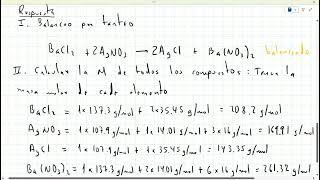 Respuesta
I. Balanceo por tanteo
BaCl₂ + 2AgNO₃ → 2AgCl + Ba(NO₃)₂ balanceado
II. Calcular la M de todos los compuestos: Tener la
masa molar de cada elemento
BaCl₂ = 1x137.3 g/mol + 2x35.45 g/mol = 208.2 g/mol
AgNO₃ = 1x107.9 g/mol + 1x14.01 g/mol + 3x16 g/mol = 169.91 g/mol
AgCl = 1x107.9 g/mol + 1x35.45 g/mol = 143.35 g/mol
Ba(NO₃)₂ = 1x137.3 g/mol + 2x14.01 g/mol + 6x16 g/mol = 261.32 g/mol